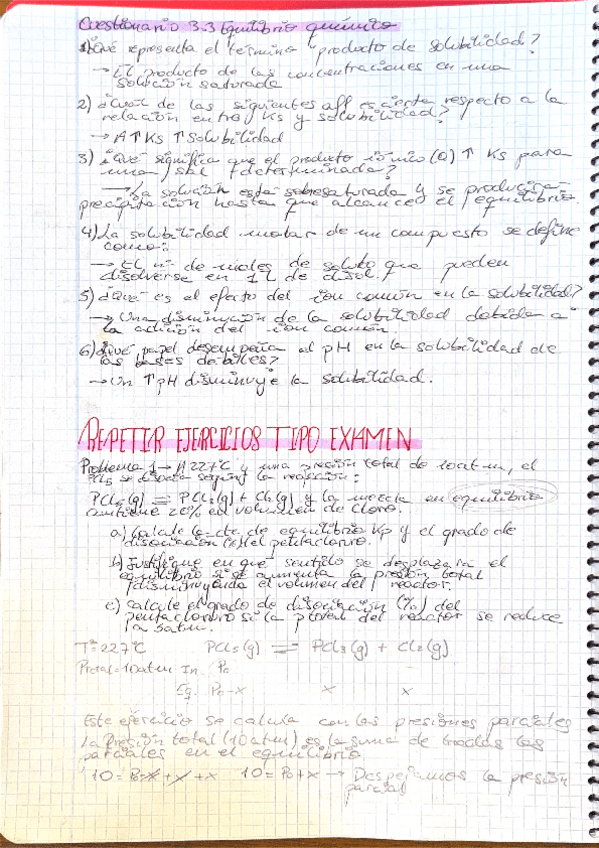 Cuestionario 3.3 Equilibrio químico
1)¿Qué representa el término producto de solubilidad?
→ El producto de las concentraciones en una
solución saturada
2) ¿Cuál de las siguientes aff es cierta respecto a la
relación entre Ks y solubilidad?
→ A↑Ks ↑Solubilidad
3) ¿Qué significa que el producto iónico (Q) ↑ Ks para
una sal determinada?
→ La solución está sobresaturada y se producirá
precipitación hasta que alcance el equilibrio.
4) La solubilidad molar de un compuesto se define
como:
→ El nº de moles de soluto que pueden
disolverse en 1L de disol.
5) ¿Qué es el efecto del ion común en la solubilidad?
→ Una disminución de la solubilidad debida a
la adición del ion común.
6) ¿Qué papel desempeña el pH en la solubilidad de
las bases débiles?
→ Un ↑pH disminuye la solubilidad.
REPETIR EJERCICIOS TIPO EXAMEN
Problema 1 → A 227ºC y una presión total de 10atm, el
PCl5 se disocia según la reacción:
PCl5(g) ⇌ PCl3(g) + Cl2(g) y la mezcla en equilibrio
contiene 20% en volumen de cloro.
a) Calcule la cte de equilibrio Kp y el grado de
disociación del pentacloruro.
b) Justifique en qué sentido se desplazará el
equilibrio si se aumenta la presión total
disminuyendo el volumen del reactor.
c) Calcule el grado de disociación (%) del
pentacloruro si la ptotal del reactor se reduce
a 5atm.
T=227ºC PCl5(g) ⇌ PCl3(g) + Cl2(g)
Ptotal=10atm In. Po
Eq. Po-x x x
Este ejercicio se calcula con las presiones parciales
La Presión total (10atm) es la suma de todas las
parciales en el equilibrio
10=Po-x+x+x 10=Po+x → Despejamos la presión
parcial